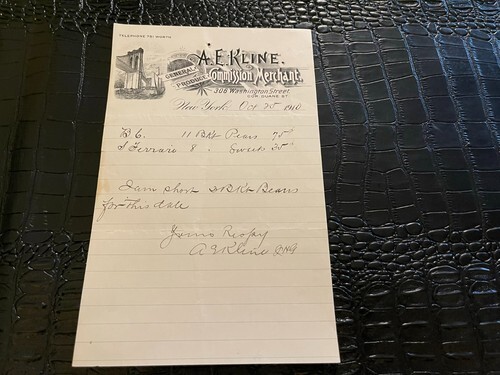 TELEPHONE 781 WORTH
A. E. KLINE.
GENERAL
PRODUCE
Commission Merchant,
308 Washington Street,
COR. DUANE ST.
New York Oct 25 1910
B C. 11 Bkt Pears 75¢
S Ferraro 8 " Sweets 30¢
I am short 2 Bkt Beans
for this date
Yours Respy
A E Kline